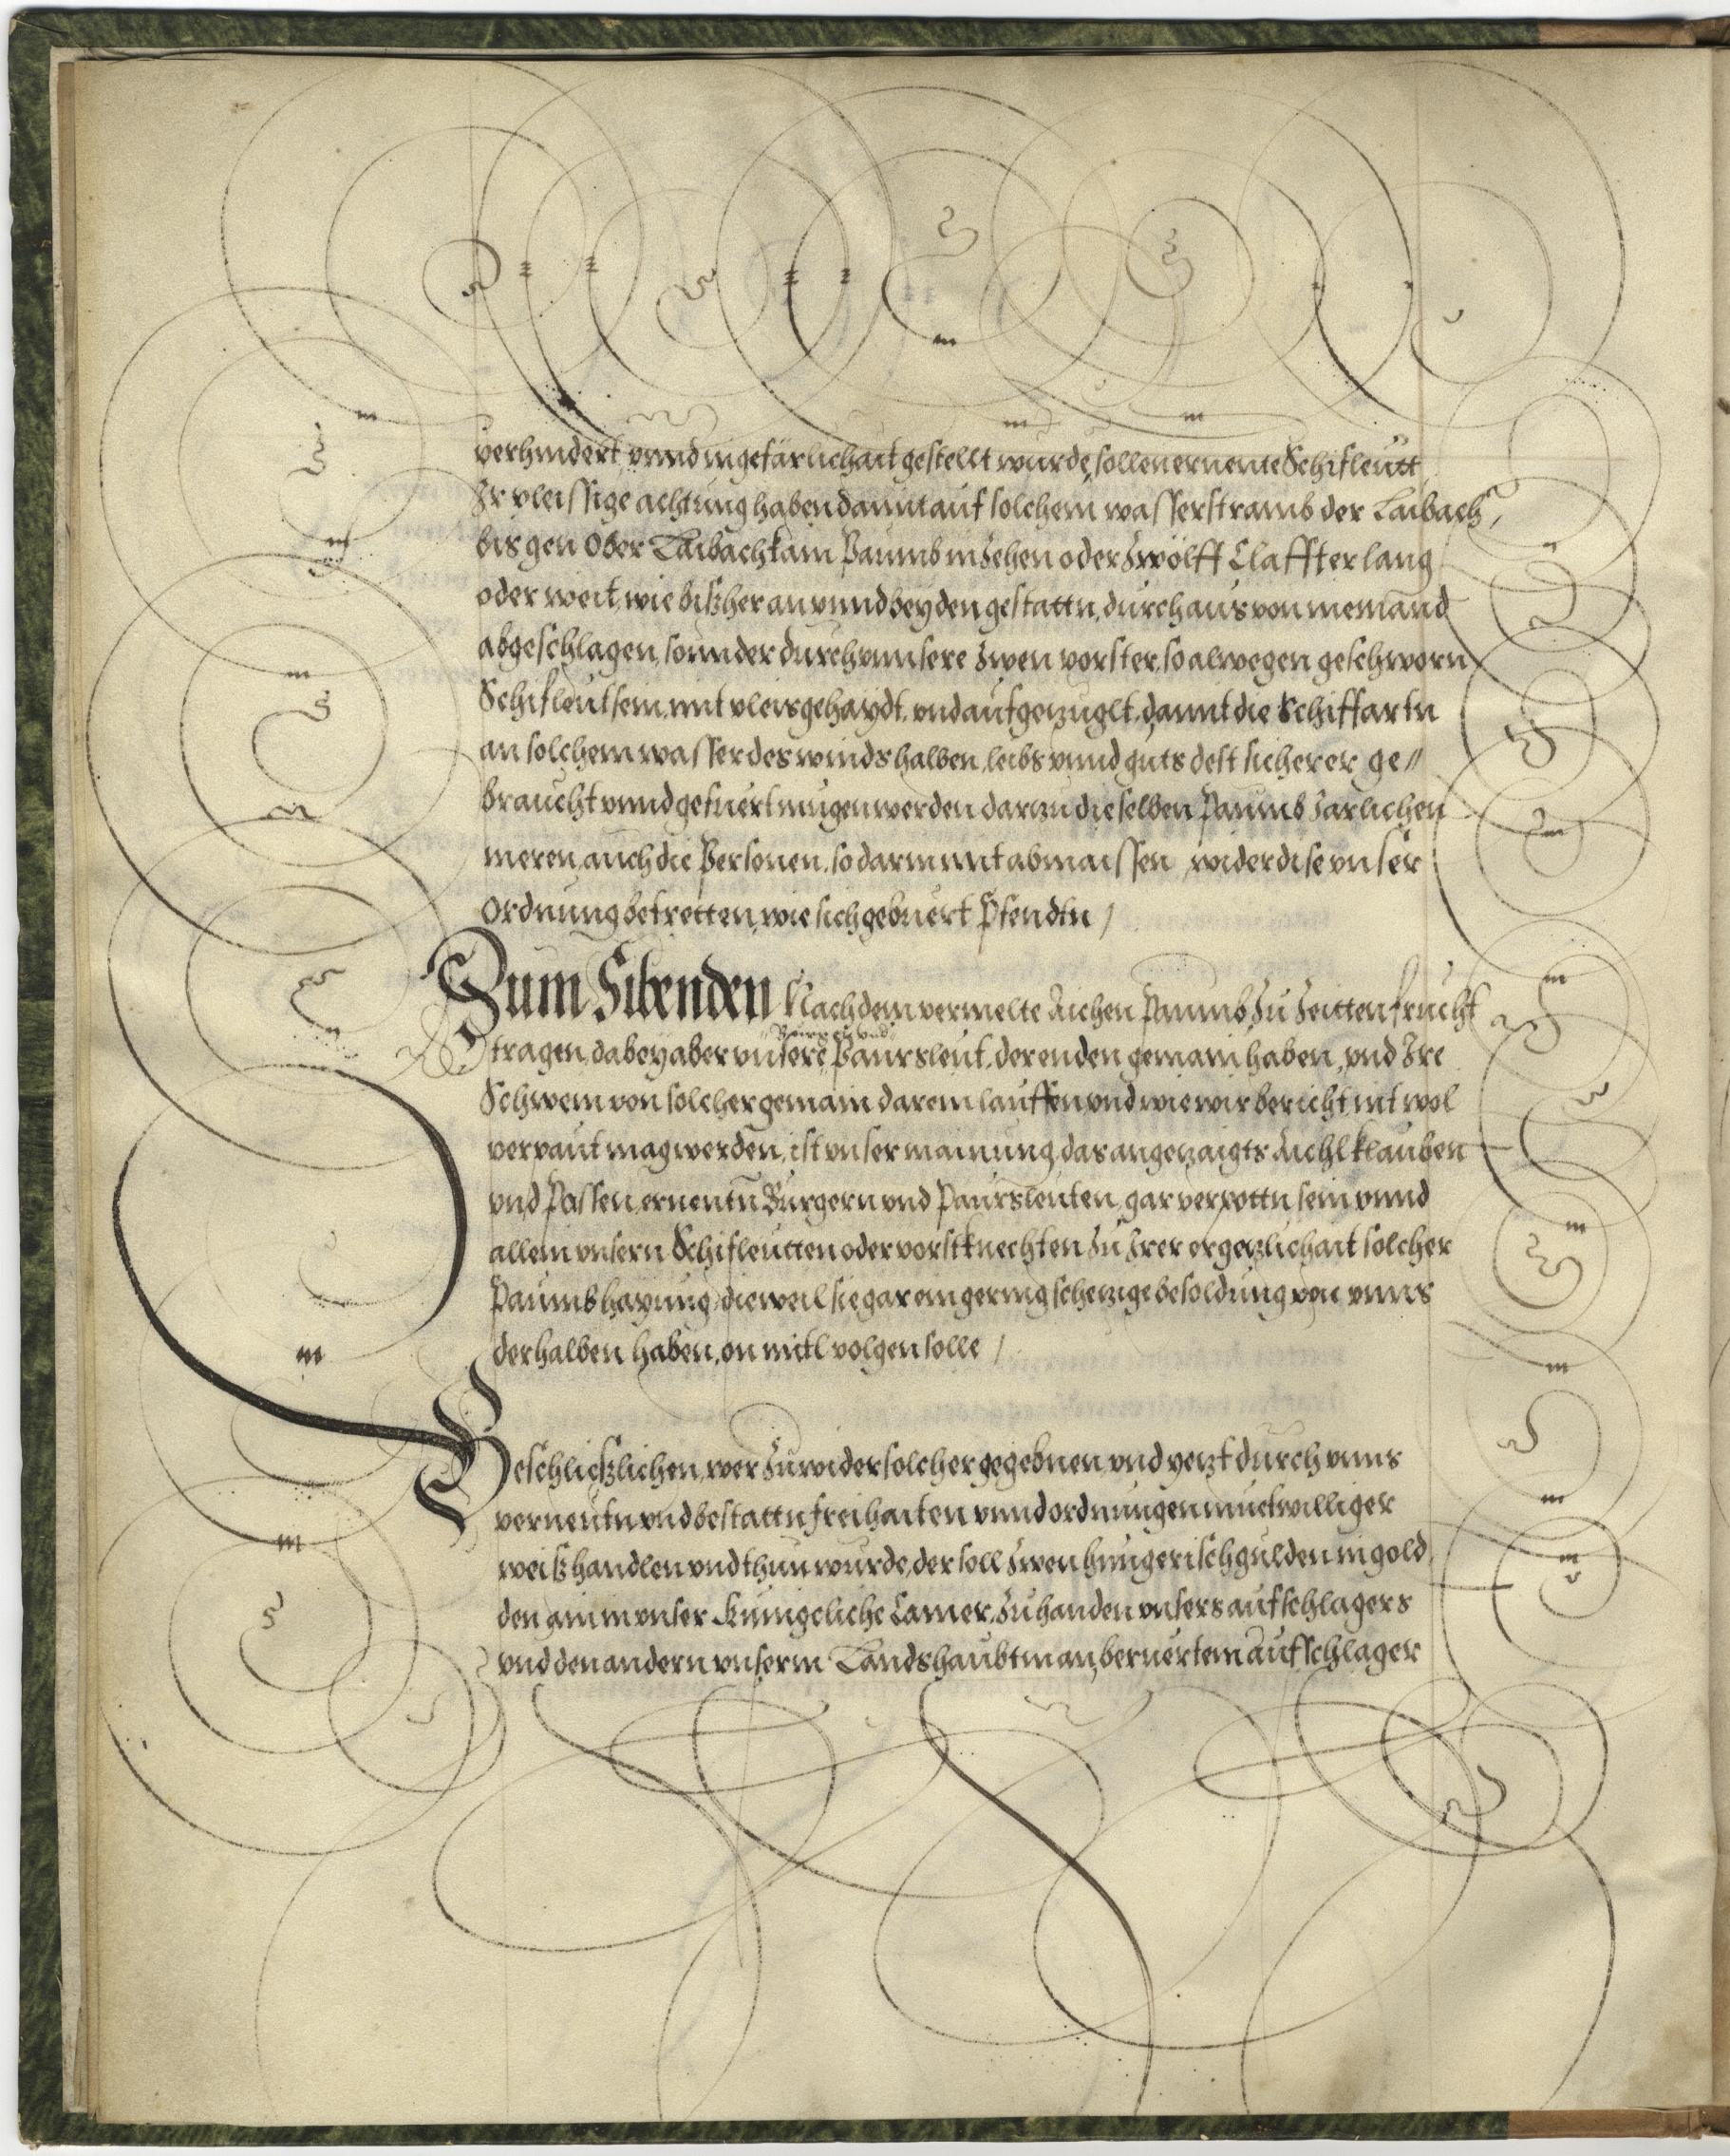 verhindert vnnd in gefärlichait gestellt wurde, sollen ernente Schifleutt
Ir vleissige achtung haben damit auf solchem wasserstramb der Laibach,
bis gen Ober Laibach kain Paumb in Zehen oder Zwölff Claffter lang
oder weit, wie bißher an vnnd beyden gestattn, durchaus von niemand
abgeschlagen, sonnder durch vnnsere Zwen vorster, so alwegen geschworn
Schifleut sein, mit vleis gehaydt, vnd aufgetzuglt, damit die Schiffartn
an solchem wasser des winds halben, leibs vnnd guts dest sicherer ge//
braucht vnnd gefuert mugen werden, dartzu dieselben Paumb Jarlichen
meren, auch die Personen, so darin mit abmaissen, wider dise vnser
Ordnung betretten, wie sich gebuert Pfendtn /
Zum Sibenden Nachdem vermelte Aichen Paumb Zu Zeitten frucht
tragen, dabey aber vnsere Burger vnd Paursleut, deren den gemain haben, vnd Ire
Schwein von solcher gemain darein lauffen vnd wie wir bericht nit wol
verpaut mag werden, ist vnser mainung, das angetzaigts Aichl klauben
vnd Passen, ernentn Burgern vnd Paursleuten, gar verpottn sein vnnd
allein vnsern Schifleutten oder vorstknechten Zu Irer ergetzlichait solcher
Paumb hayung, dieweil sie gar ein gering schetzige besoldung von vnns
derhalben haben, on mitl volgen solle /
Beschließlichen, wer Zuwider solcher gegebnen, vnd yetzt durch vnns
verneutn vnd bestattn freihaiten vnnd ordnungen muetwilliger
weiß handlen vnd thun wurde, der soll Zwen hungerisch gulden in gold,
den ain in vnser Kunigeliche Camer, Zu handen vnsers aufschlagers
vnd den andern vnserm Landshaubtman, beruertem Aufschlager